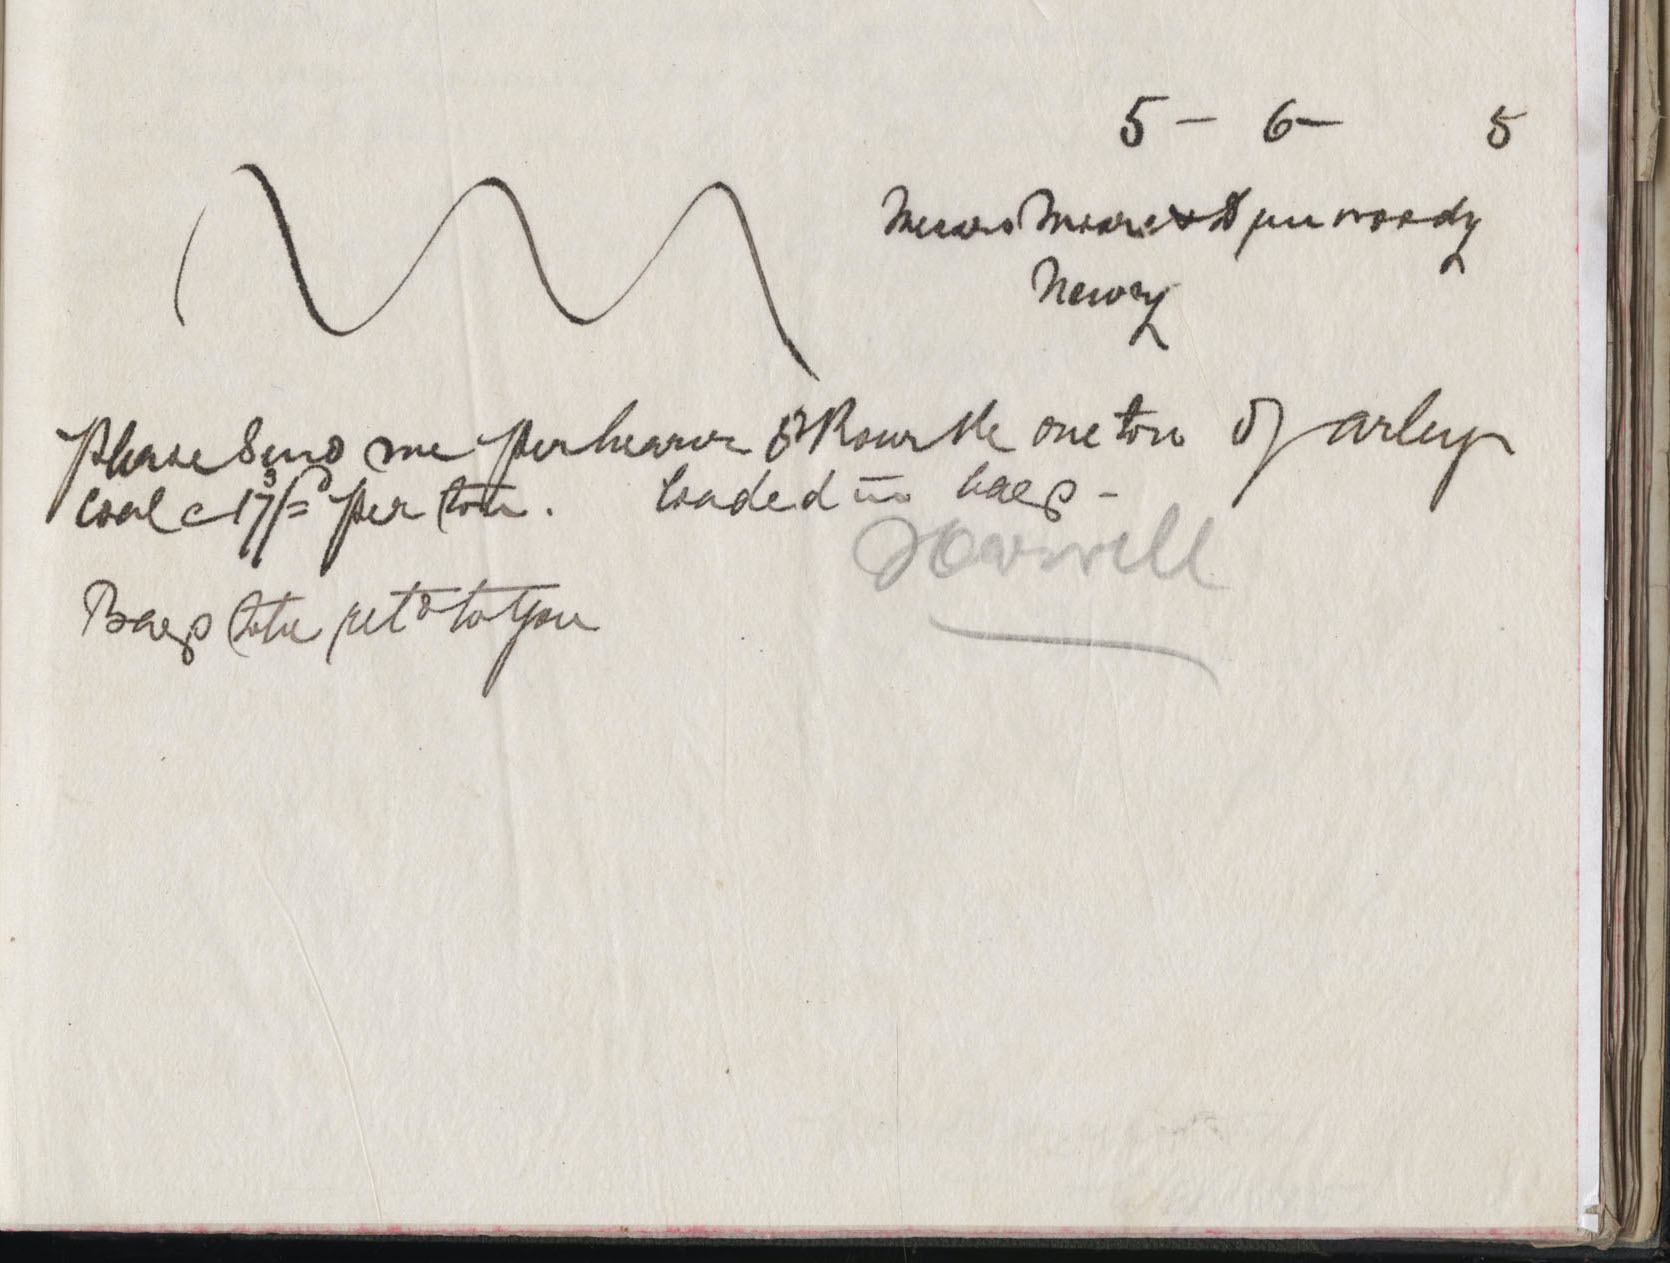 5 - 6 - 5
Messrs Moore & Dunwoody
Newry
Please Send me per bearer O'Rourke one ton of arley
Coal @ 17/= per ton. loaded in bags -
Bags to be retd to you